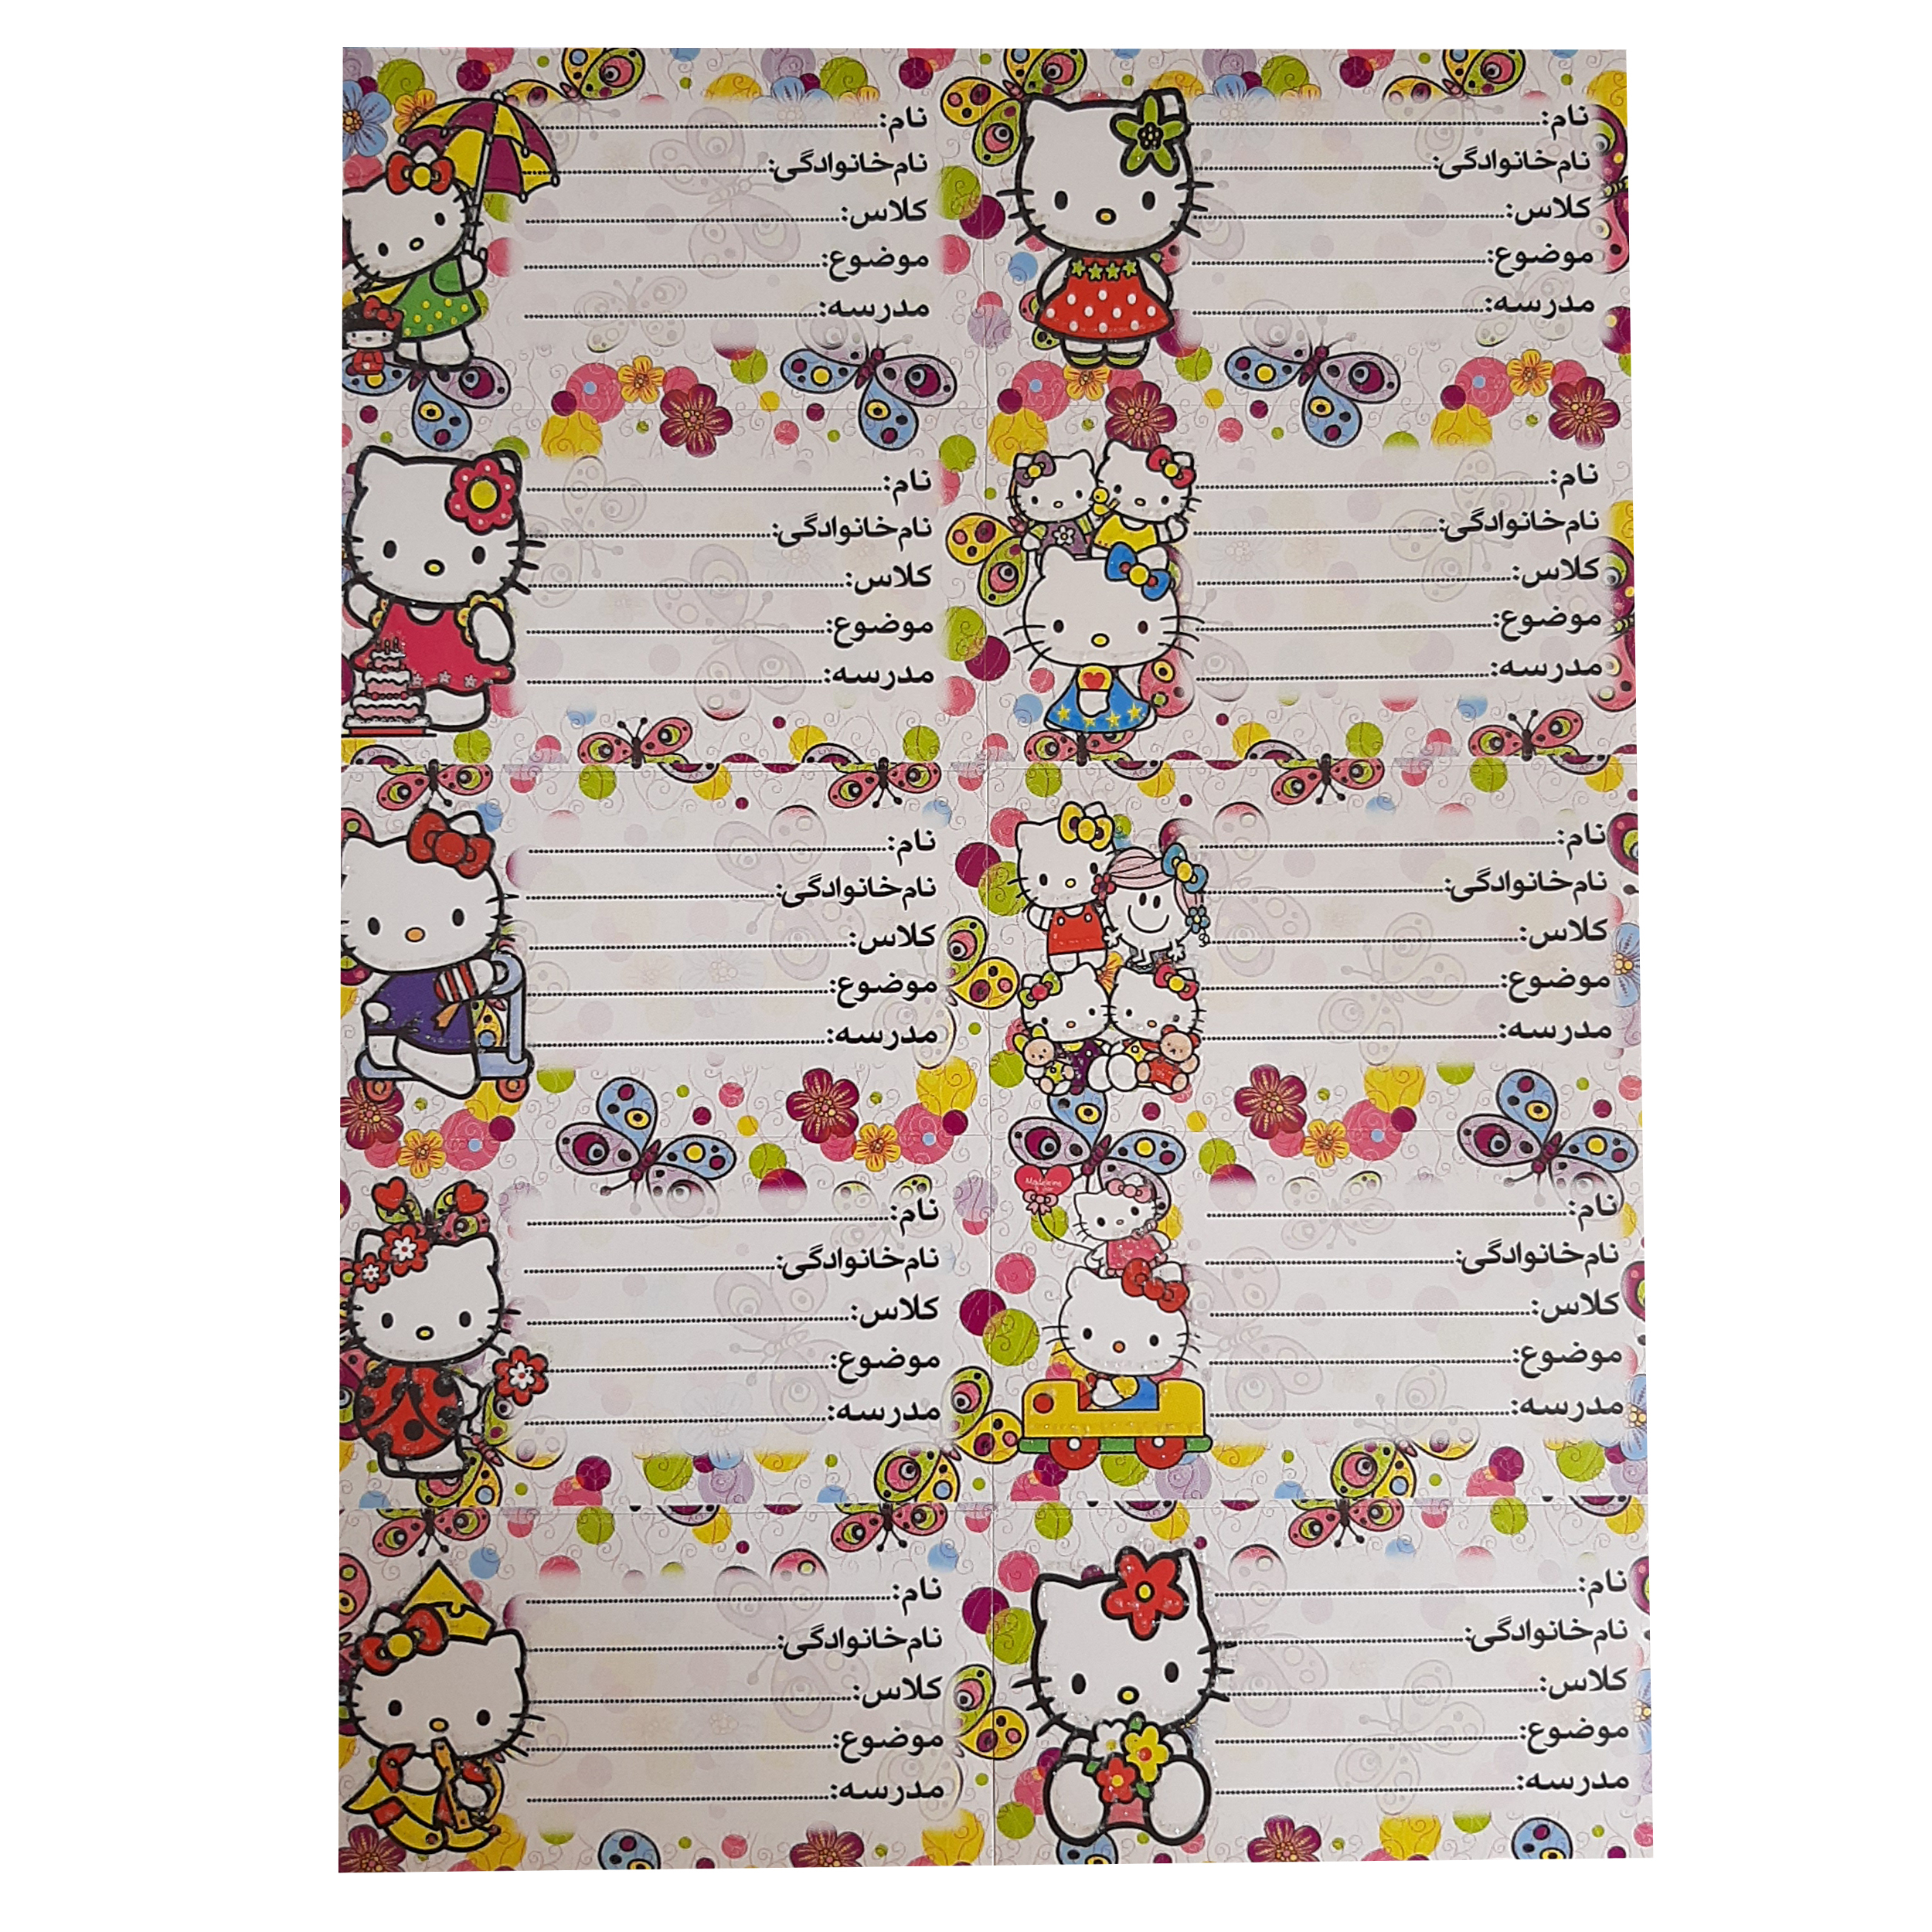 نام:
نام‌خانوادگی:
کلاس:
موضوع:
مدرسه:
نام:
نام‌خانوادگی:
کلاس:
موضوع:
مدرسه:
نام:
نام‌خانوادگی:
کلاس:
موضوع:
مدرسه:
نام:
نام‌خانوادگی:
کلاس:
موضوع:
مدرسه:
نام:
نام‌خانوادگی:
کلاس:
موضوع:
مدرسه:
نام:
نام‌خانوادگی:
کلاس:
موضوع:
مدرسه:
نام:
نام‌خانوادگی:
کلاس:
موضوع:
مدرسه:
نام:
نام‌خانوادگی:
کلاس:
موضوع:
مدرسه:
نام:
نام‌خانوادگی:
کلاس:
موضوع:
مدرسه:
نام:
نام‌خانوادگی:
کلاس:
موضوع:
مدرسه: